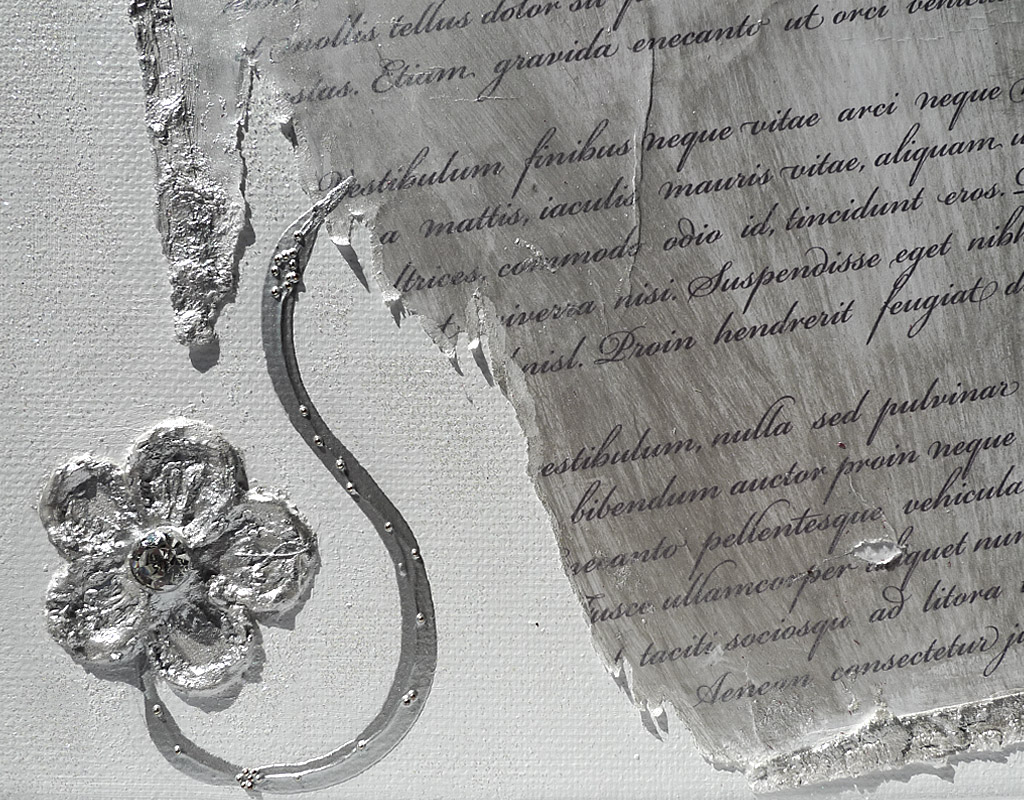 mollis tellus dolor sit
stas. Etiam gravida enecanto ut orci
Vestibulum finibus neque vitae arci neque
a mattis, iaculis mauris vitae, aliquam
ltrices, commodo odio id, tincidunt eros.
t viverra nisi. Suspendisse eget nibh
nisl. Proin hendrerit feugiat d
estibulum, nulla sed pulvinar
bibendum auctor proin neque
necanto pellentesque vehicula
Fusce ullamcorper aliquet nun
taciti sociosqu ad litora
Aenean consectetur ju